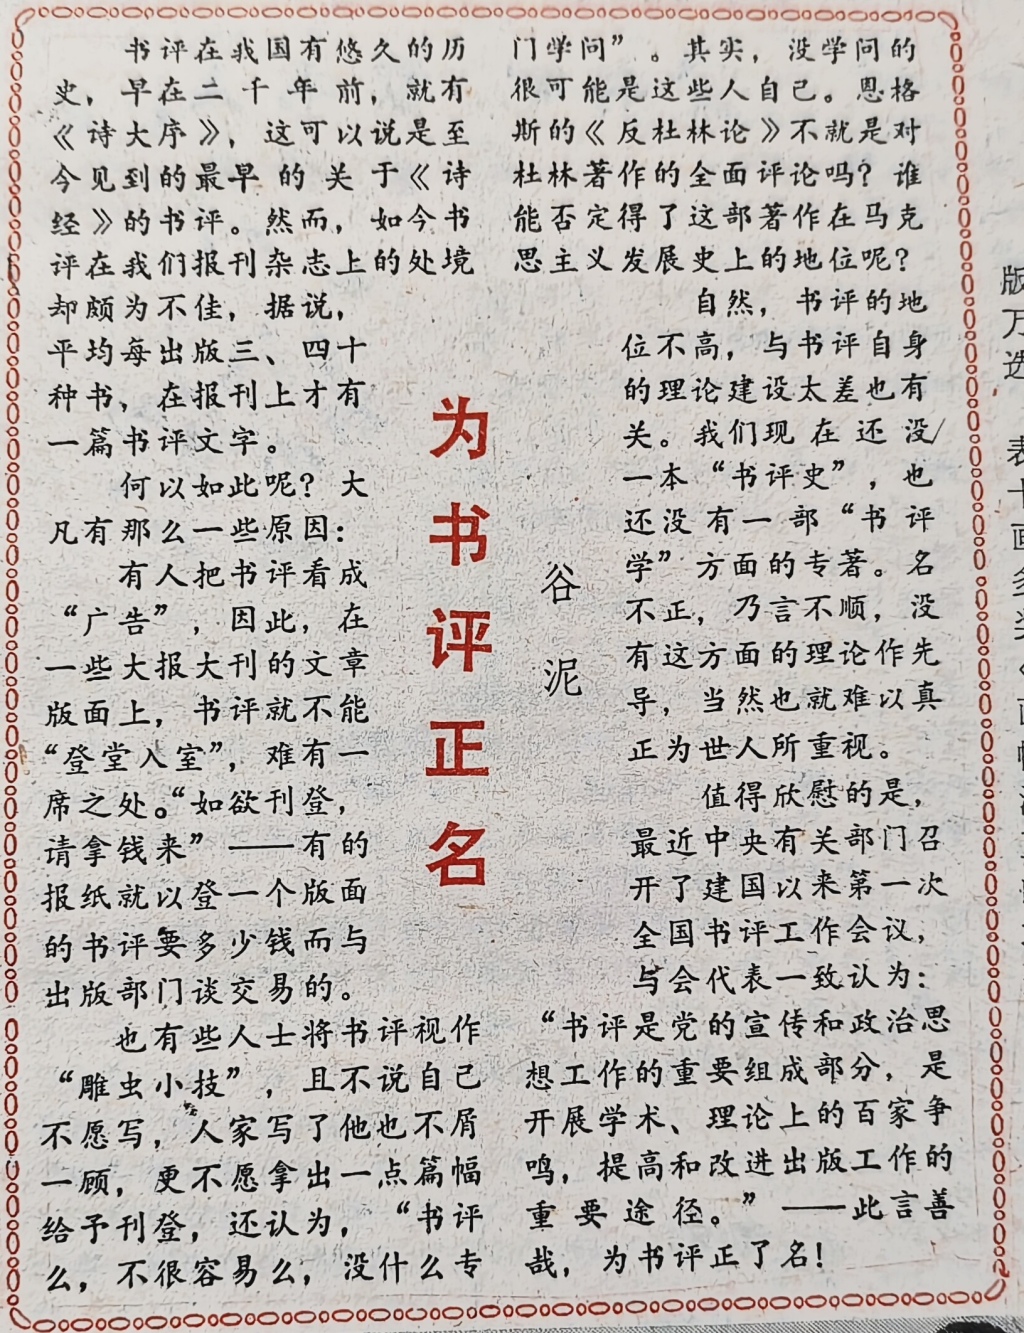 为书评正名
谷泥
书评在我国有悠久的历
史，早在二千年前，就有
《诗大序》，这可以说是至
今见到的最早的关于《诗
经》的书评。然而，如今书
评在我们报刊杂志上的处境
却颇为不佳，据说，
平均每出版三、四十
种书，在报刊上才有
一篇书评文字。
何以如此呢？大
凡有那么一些原因：
有人把书评看成
“广告”，因此，在
一些大报大刊的文章
版面上，书评就不能
“登堂入室”，难有一
席之处。“如欲刊登，
请拿钱来”——有的
报纸就以登一个版面
的书评要多少钱而与
出版部门谈交易的。
也有些人士将书评视作
“雕虫小技”，且不说自己
不愿写，人家写了他也不屑
一顾，更不愿拿出一点篇幅
给予刊登，还认为，“书评
么，不很容易么，没什么专
门学问”。其实，没学问的
很可能是这些人自己。恩格
斯的《反杜林论》不就是对
杜林著作的全面评论吗？谁
能否定得了这部著作在马克
思主义发展史上的地位呢？
自然，书评的地
位不高，与书评自身
的理论建设太差也有
关。我们现在还没
一本“书评史”，也
还没有一部“书评
学”方面的专著。名
不正，乃言不顺，没
有这方面的理论作先
导，当然也就难以真
正为世人所重视。
值得欣慰的是，
最近中央有关部门召
开了建国以来第一次
全国书评工作会议，
与会代表一致认为：
“书评是党的宣传和政治思
想工作的重要组成部分，是
开展学术、理论上的百家争
鸣，提高和改进出版工作的
重要途径。”——此言善
哉，为书评正了名！
版
万
选
表
十